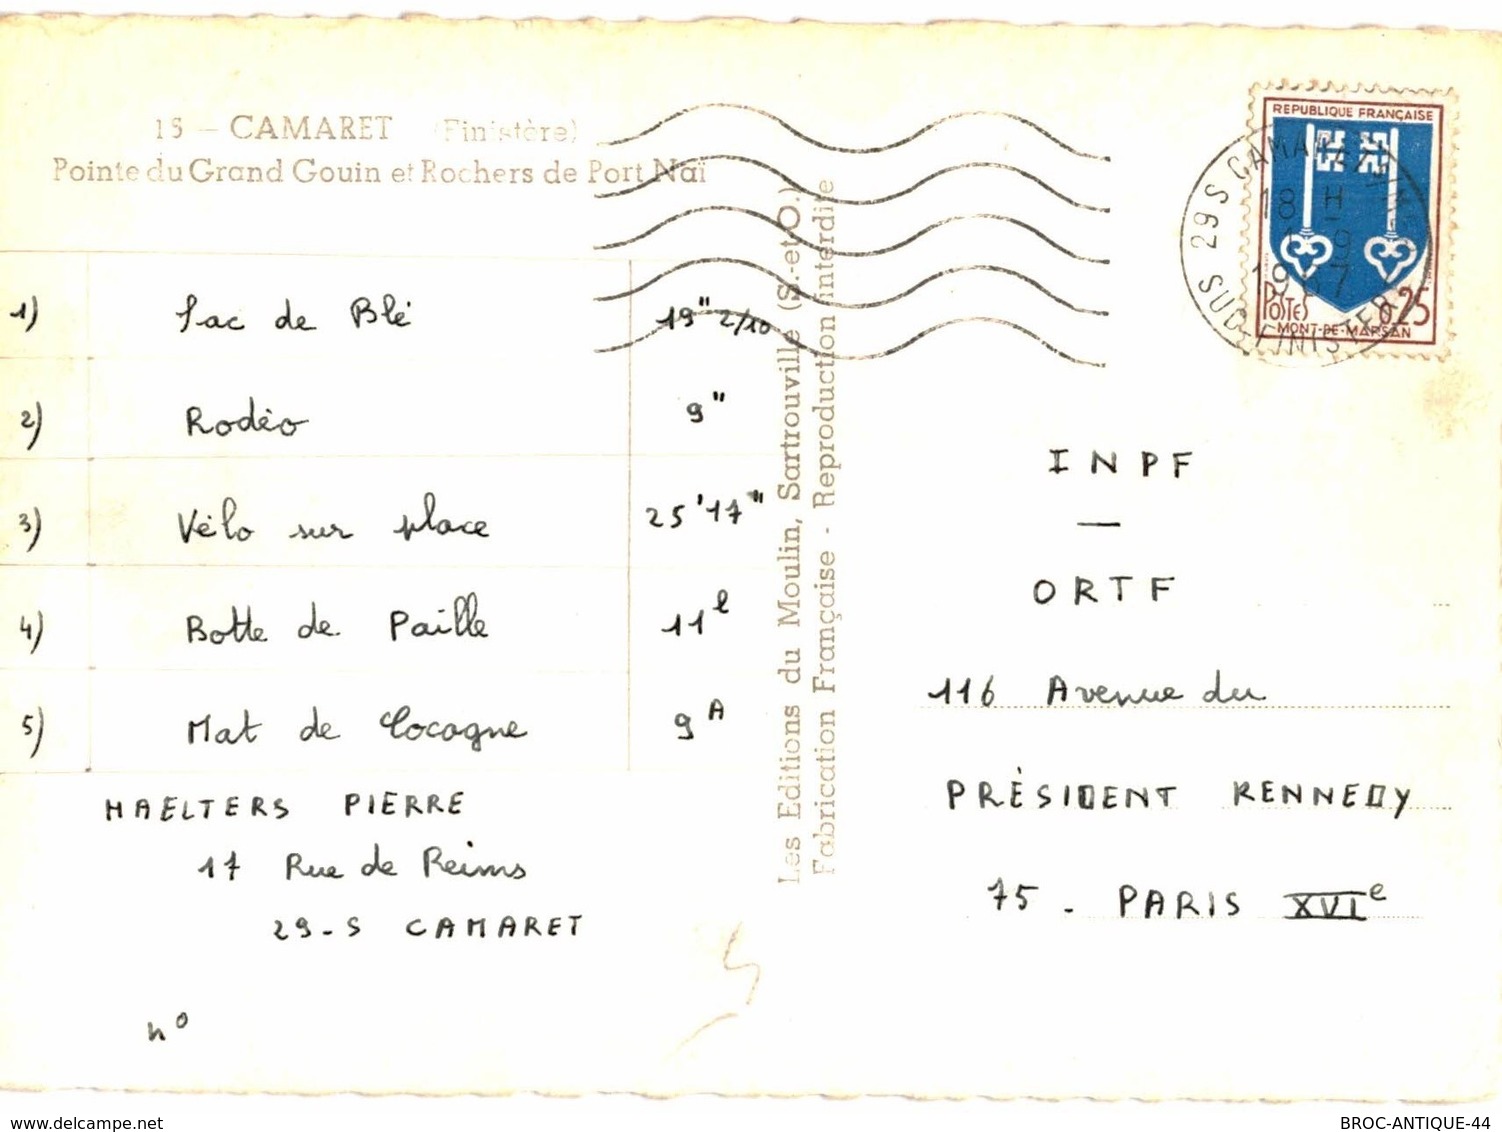 15 - CAMARET (Finistère)
Pointe du Grand Gouin et Rochers de Port Naï
1) Sac de Blé 19" 2/10
2) Rodéo 9"
3) Vélo sur place 25'17"
4) Botte de Paille 11 l
5) Mat de Cocagne 9 A
MAELTERS PIERRE
17 Rue de Reims
29-S CAMARET
n°
Les Editions du Moulin, Sartrouville (S.-et-O.)
Fabrication Française - Reproduction interdite
REPUBLIQUE FRANÇAISE
POSTES
0,25
MONT-DE-MARSAN
29 S CAMARET
18 H
1967
SUD-FINISTERE
INPF
—
ORTF
116 Avenue du
PRÉSIDENT KENNEDY
75 - PARIS XVIe
delcampe.net
BROC-ANTIQUE-44